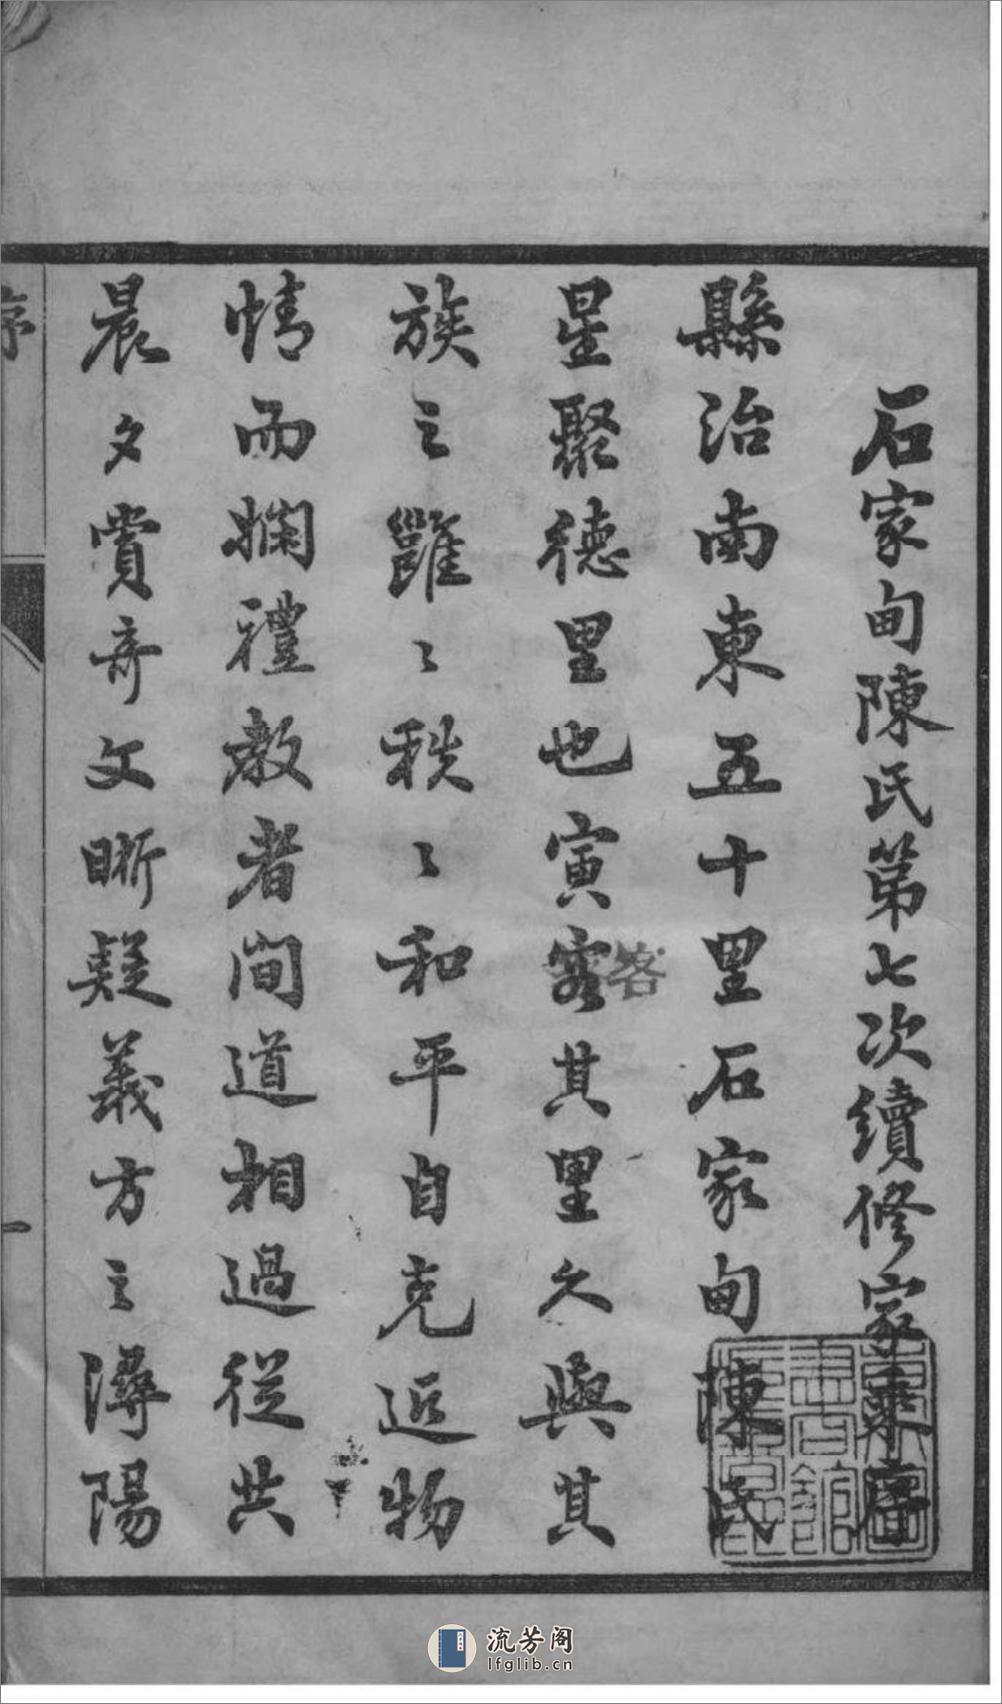 石家甸陳氏第七次續修家乘序
縣治南東五十里石家甸陳氏
星聚德里也寅客其里久與其
客
族之雝〻秩〻和平自克近物
情而嫻禮教者間道相過從共
晨夕賞奇文晰疑義方之潯陽
序
一
流芳阁
lfglib.cn